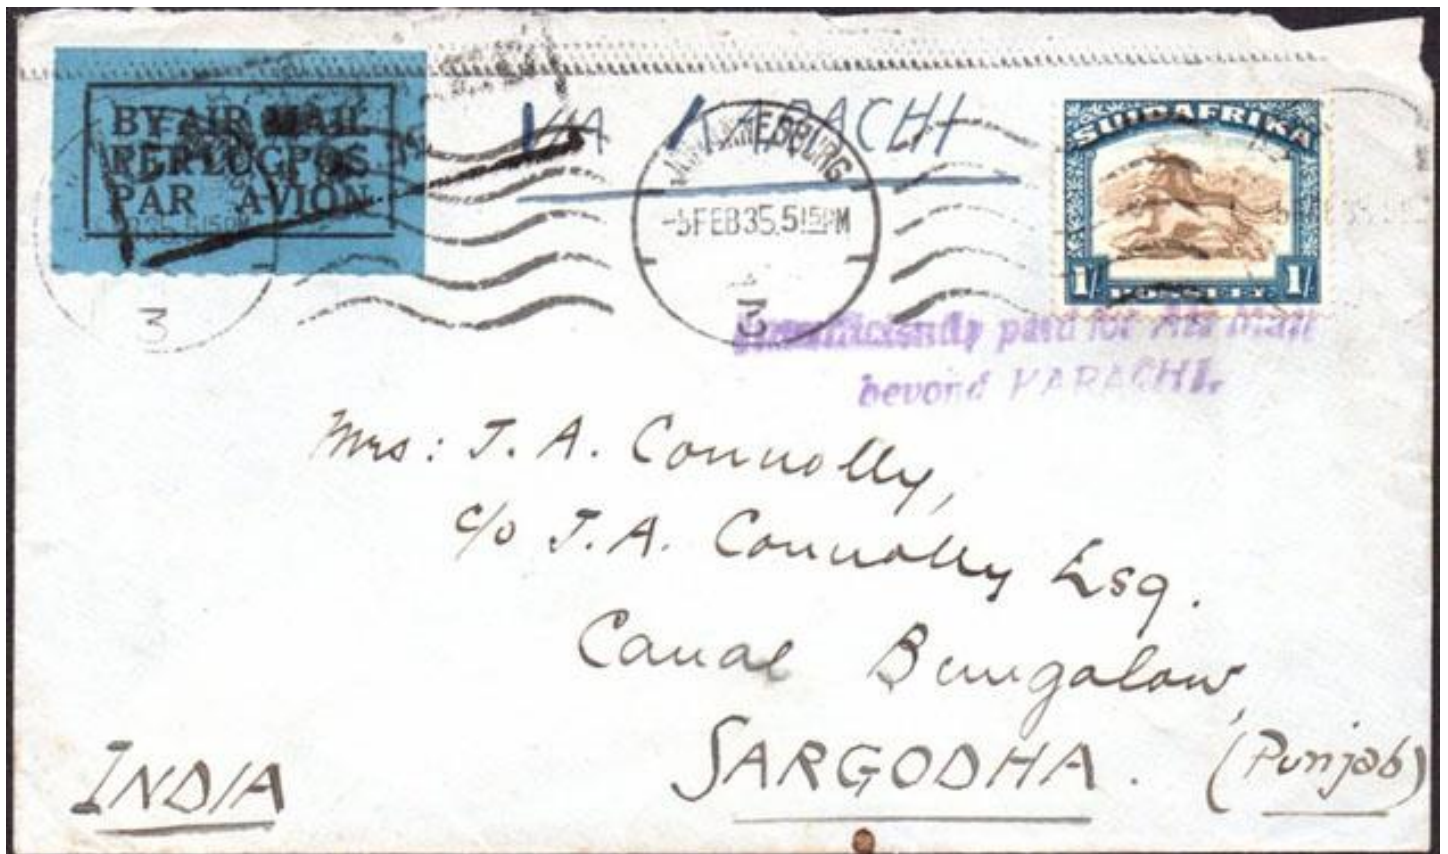 BY AIR MAIL
PER LUGPOS
PAR AVION
VIA KARACHI
JOHANNESBURG
-5FEB35.515PM
3
3
SUIDAFRIKA
1/- 1/-
Insufficiently paid for Air Mail
beyond KARACHI.
Mrs: J. A. Connolly,
c/o J. A. Connolly Esq.
Canal Bungalow,
SARGODHA. (Punjab)
INDIA